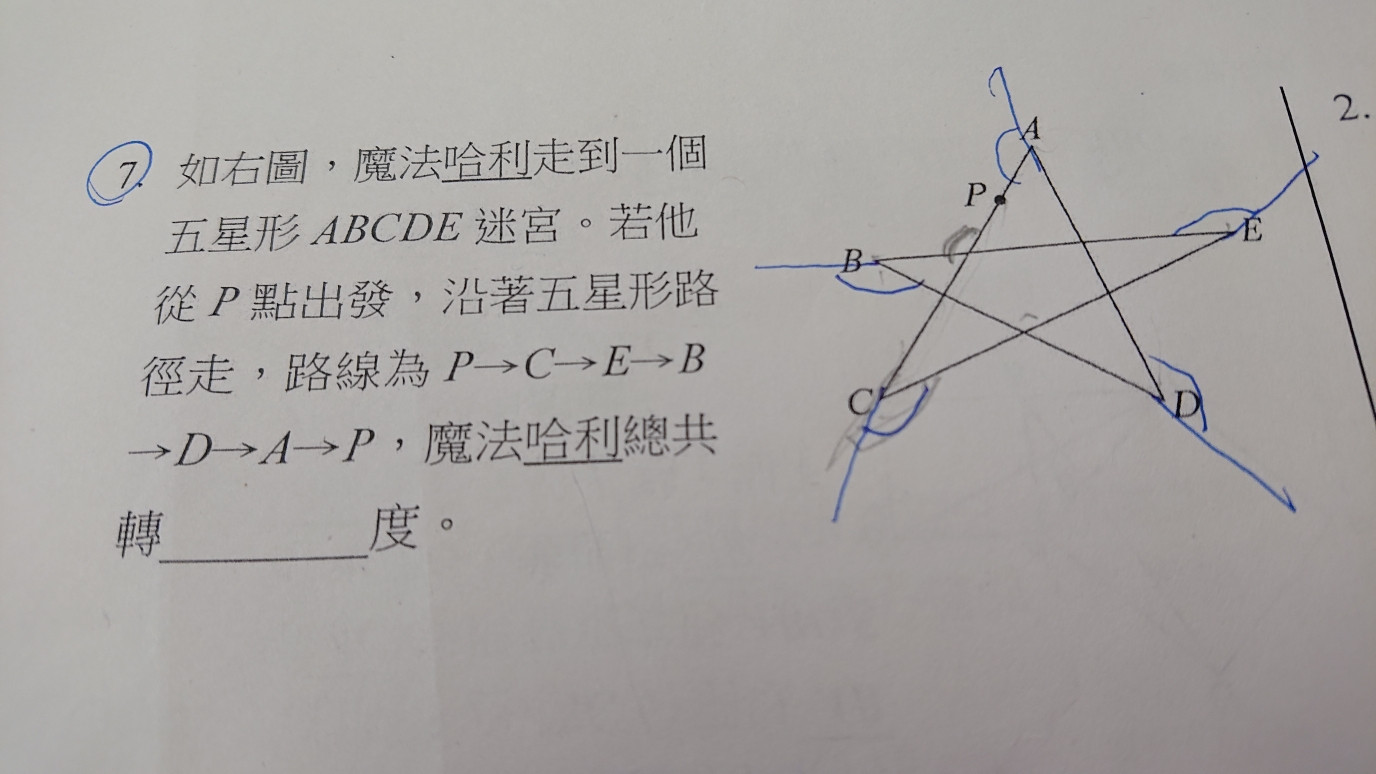 7. 如右圖，魔法哈利走到一個
五星形 ABCDE 迷宮。若他
從 P 點出發，沿著五星形路
徑走，路線為 P→C→E→B
→D→A→P，魔法哈利總共
轉________度。
A
P
E
B
C
D
2.